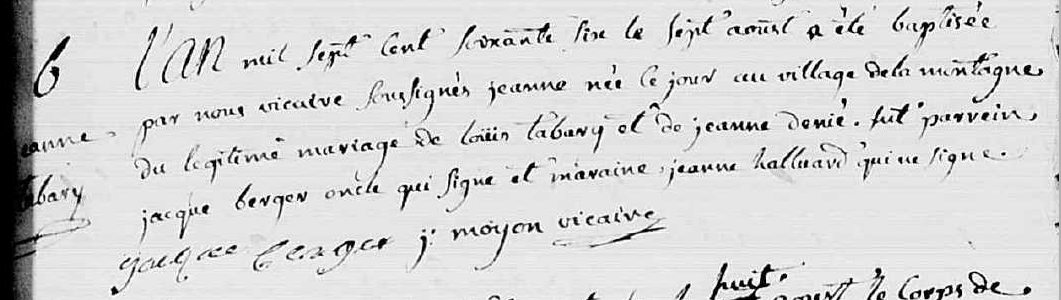 b
L'AN mil sept cent soixante six le sept aoust a été baptisée
par nous vicaire soussignés jeanne née ce jour au village de la montagne
du legitime mariage de loüis tabary et de jeanne denié. fut parrein,
jacque berger oncle qui signe et maraine, jeanne halluard qui ne signe.
jacque berger j: moyon vicaire
eanne
tabary
huit.
le Corps de